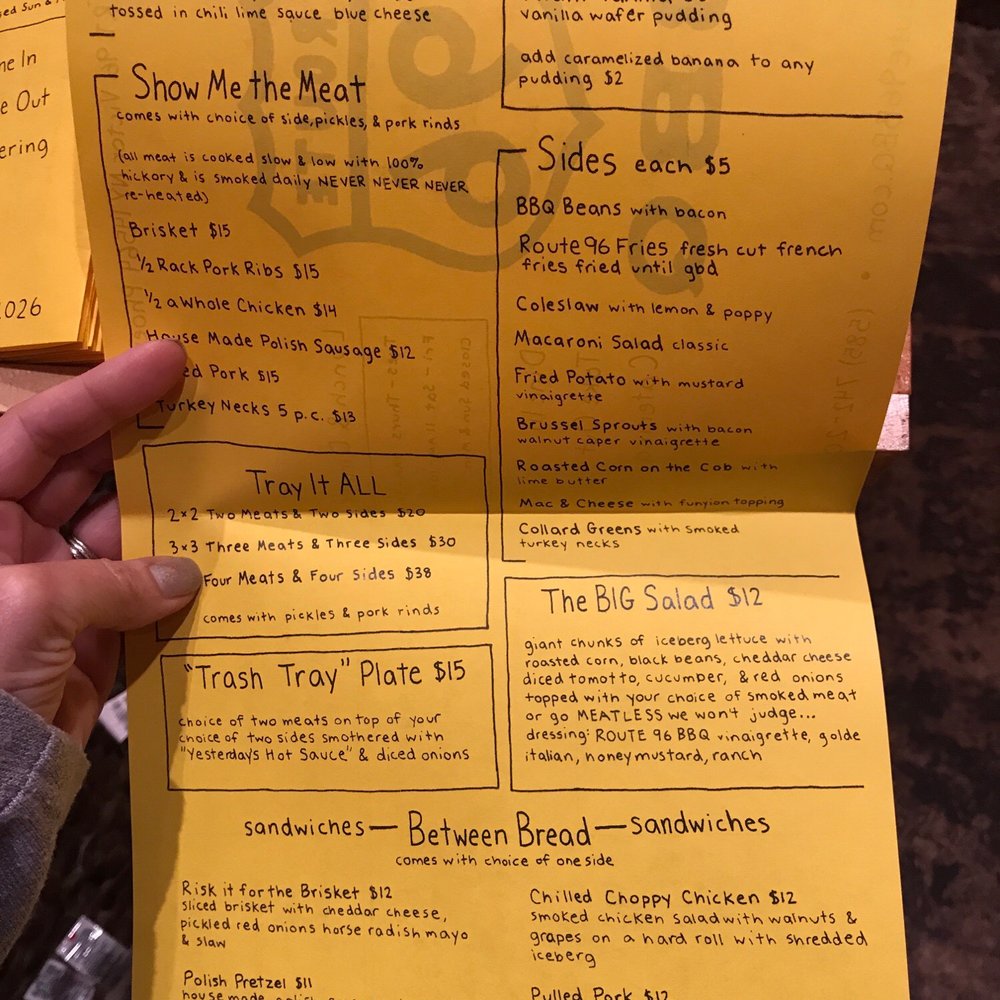 ed Sun &
me In
e Out
ering
1026
tossed in chili lime sauce blue cheese
Show Me the Meat
comes with choice of side, pickles, & pork rinds
(all meat is cooked slow & low with 100%
hickory & is smoked daily NEVER NEVER NEVER
re-heated)
Brisket $15
1/2 Rack Pork Ribs $15
1/2 a Whole Chicken $14
House Made Polish Sausage $12
ed Pork $15
Turkey Necks 5 p.c. $13
Tray It ALL
2×2 Two Meats & Two Sides $20
3×3 Three Meats & Three Sides $30
Four Meats & Four Sides $38
comes with pickles & pork rinds
"Trash Tray" Plate $15
choice of two meats on top of your
choice of two sides smothered with
"Yesterday's Hot Sauce" & diced onions
vanilla wafer pudding
add caramelized banana to any
pudding $2
Sides each $5
BBQ Beans with bacon
Route 96 Fries fresh cut french
fries fried until gbd
Coleslaw with lemon & poppy
Macaroni Salad classic
Fried Potato with mustard
vinaigrette
Brussel Sprouts with bacon
walnut caper vinaigrette
Roasted Corn on the Cob with
lime butter
Mac & Cheese with funyion topping
Collard Greens with smoked
turkey necks
The BIG Salad $12
giant chunks of iceberg lettuce with
roasted corn, black beans, cheddar cheese
diced tomotto, cucumper, & red onions
topped with your choice of smoked meat
or go MEATLESS we won't judge...
dressing: ROUTE 96 BBQ vinaigrette, golde
italian, honey mustard, ranch
sandwiches — Between Bread — sandwiches
comes with choice of one side
Risk it for the Brisket $12
sliced brisket with cheddar cheese,
pickled red onions horse radish mayo
& slaw
Polish Pretzel $11
house made polish
Chilled Choppy Chicken $12
smoked chicken salad with walnuts &
grapes on a hard roll with shredded
iceberg
Pulled Pork $12